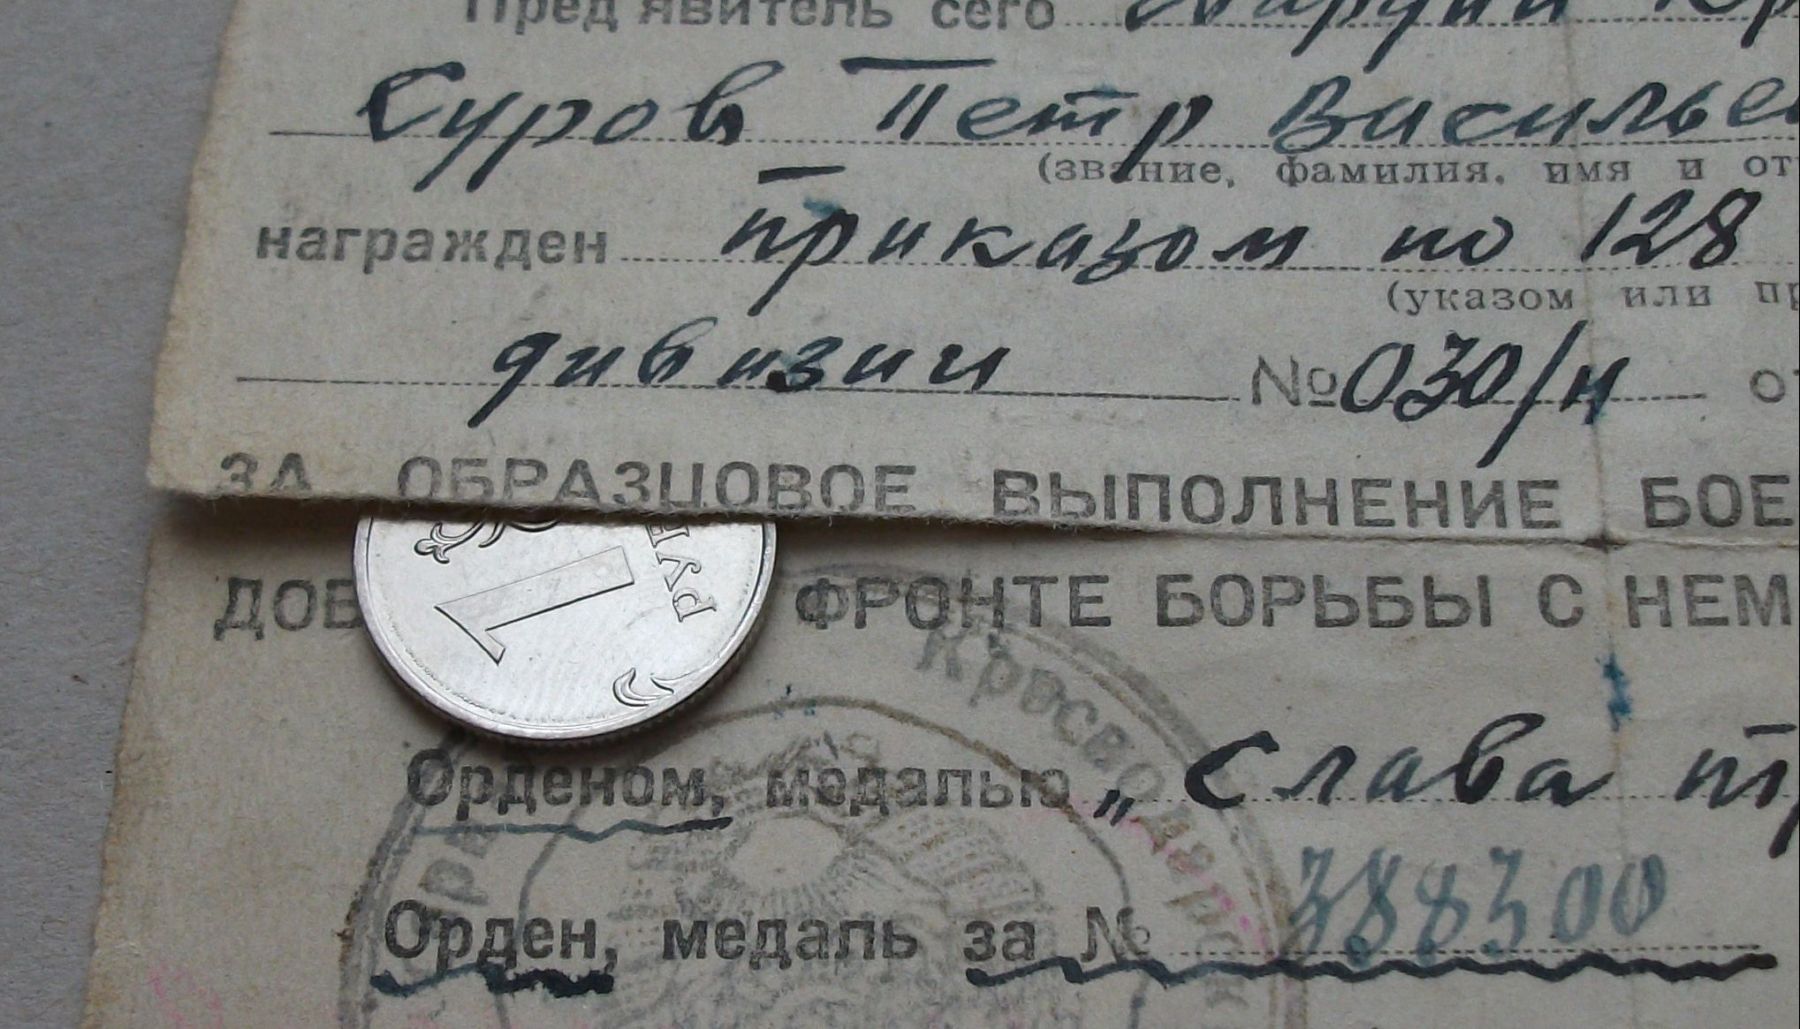 Предъявитель сего
Суров Петр Василье
(звание, фамилия, имя и от
награжден приказом по 128
(указом или пр
дивизии №030/н от
ЗА ОБРАЗЦОВОЕ ВЫПОЛНЕНИЕ БОЕ
ДОВ ФРОНТЕ БОРЬБЫ С НЕМ
1
РУБЛ
Орденом, медалью „Слава тр
Орден, медаль за № 388300